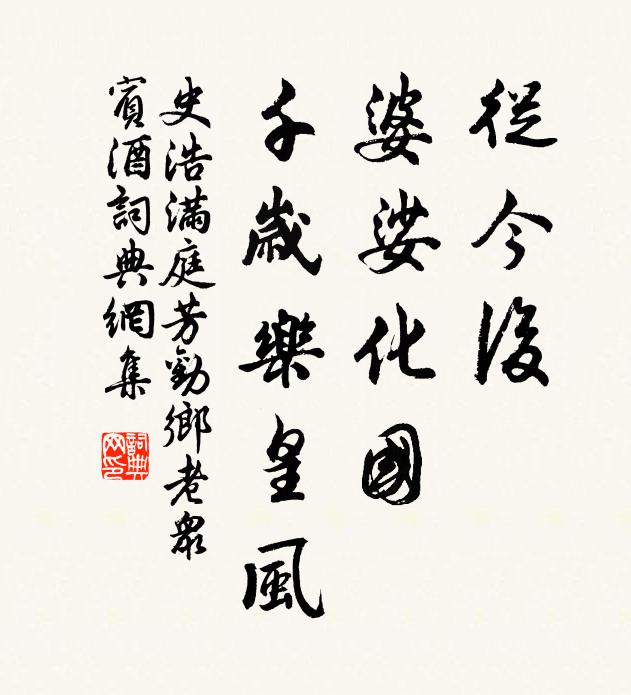 從今後
婆娑化國
千歲樂皇風
史浩滿庭芳勸鄉老衆
賓酒詞典網集
詞典网印